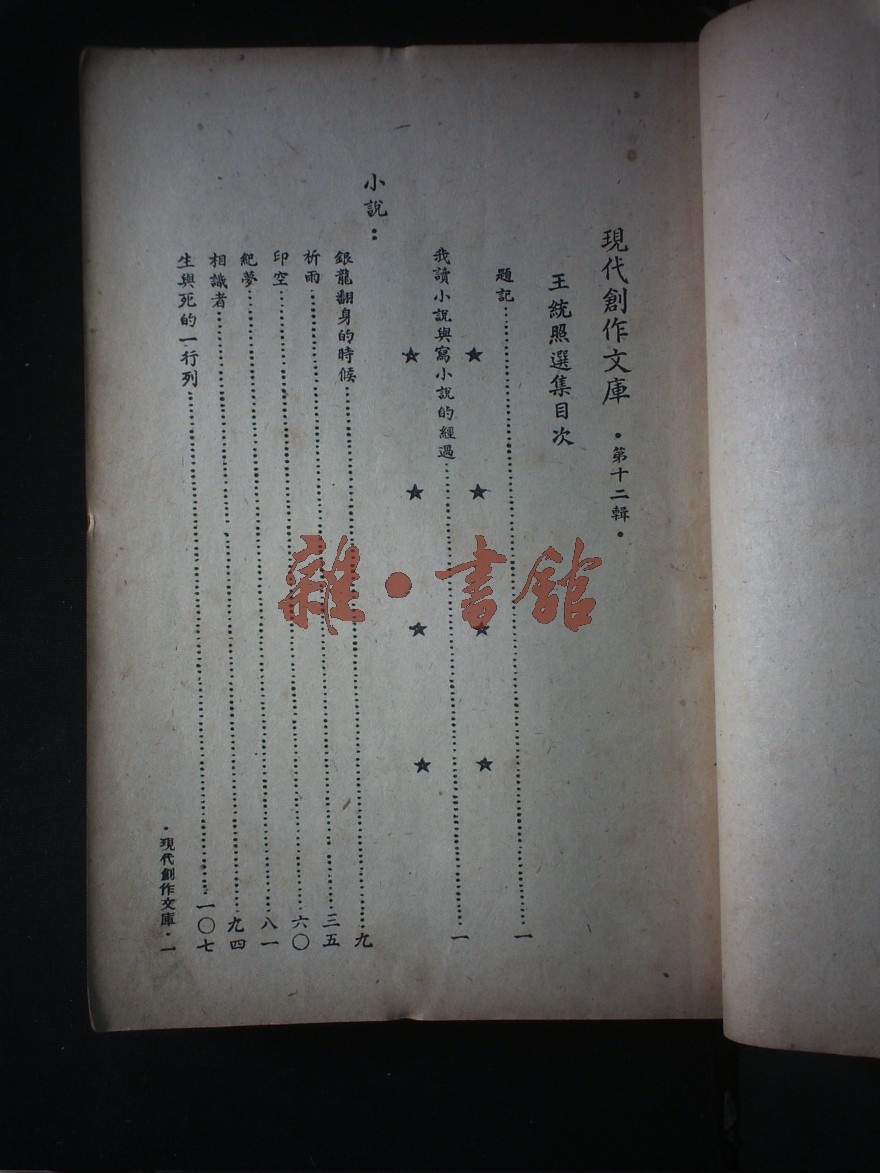 現代創作文庫 •第十二輯•
王統照選集目次
題記……一
★ ★ ★ ★
我讀小說與寫小說的經過……一
★ ★ ★ ★
小說：
銀龍翻身的時候……九
祈雨……三五
印空……六〇
紀夢……八一
相識者……九四
生與死的一行列……一〇七
•現代創作文庫•一
雜•書館